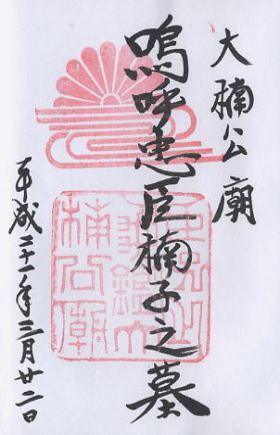 大楠公廟
嗚呼忠臣楠子之墓
楠公廟
平成二十一年三月廿二日